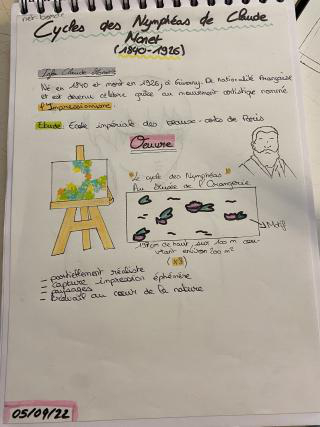 Cycles des Nymphéas de Claude
Monet
(1840-1926)
Né en 1840 et mort en 1926, à Giverny. De nationalité française
et est devenu célèbre grâce au mouvement artistique nommé
l'Impressionnisme.
Etude: Ecole impériale des beaux-arts de Paris
Oeuvre
Le cycle des Nymphéas
Au Musée de l'Orangerie
Motif
197 cm de haut, sur 100 m cou-
vrant environ 200 m²
- partiellement réaliste
- capture impression éphémère
- paysages
- au cœur de la nature
05/09/22